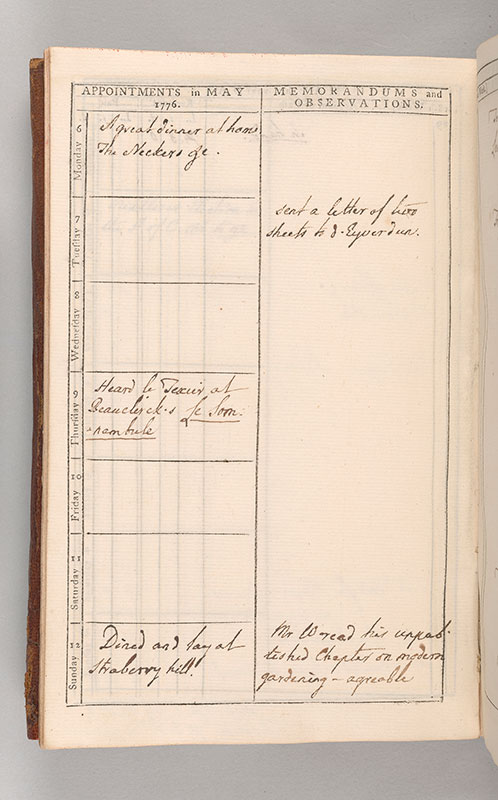 APPOINTMENTS in MAY
1776.
MEMORANDUMS and
OBSERVATIONS.
Monday 6
A great dinner at home
The Neckers &c.
Tuesday 7
sent a letter of two
sheets to d'Eyverdun.
Wednesday 8
Thursday 9
Heard le Texier at
Beauclerck's le Som-
-nambule
Friday 10
Saturday 11
Sunday 12
Dined and lay at
Straberry hill.
Mr W read his unpub-
-lished Chapter on modern
gardening - agreable